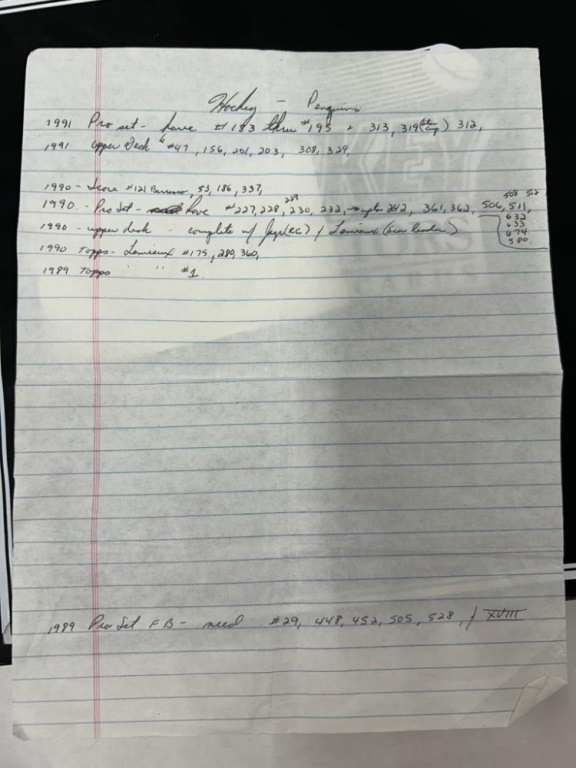 Hockey - Penguins
1991 Pro set - have #183 thru #195 + 313, 319 (St. Cup) 312,
1991 Upper Deck #47, 156, 203, 308, 329,
1990 - Score #121 53, 186, 337,
1990 - Pro Set - have #227, 228, 229, 230, 232, 242, 361, 362, 506, 511, 508 512
632
633
674
580
1990 - upper deck - complete w/ Jagr (RC) / Lemieux
1990 Topps - Lemieux #175, 280, 360,
1989 Topps " " #1
1989 Pro Set FB - need #29, 448, 452, 505, 528, / XVIII
CARDS